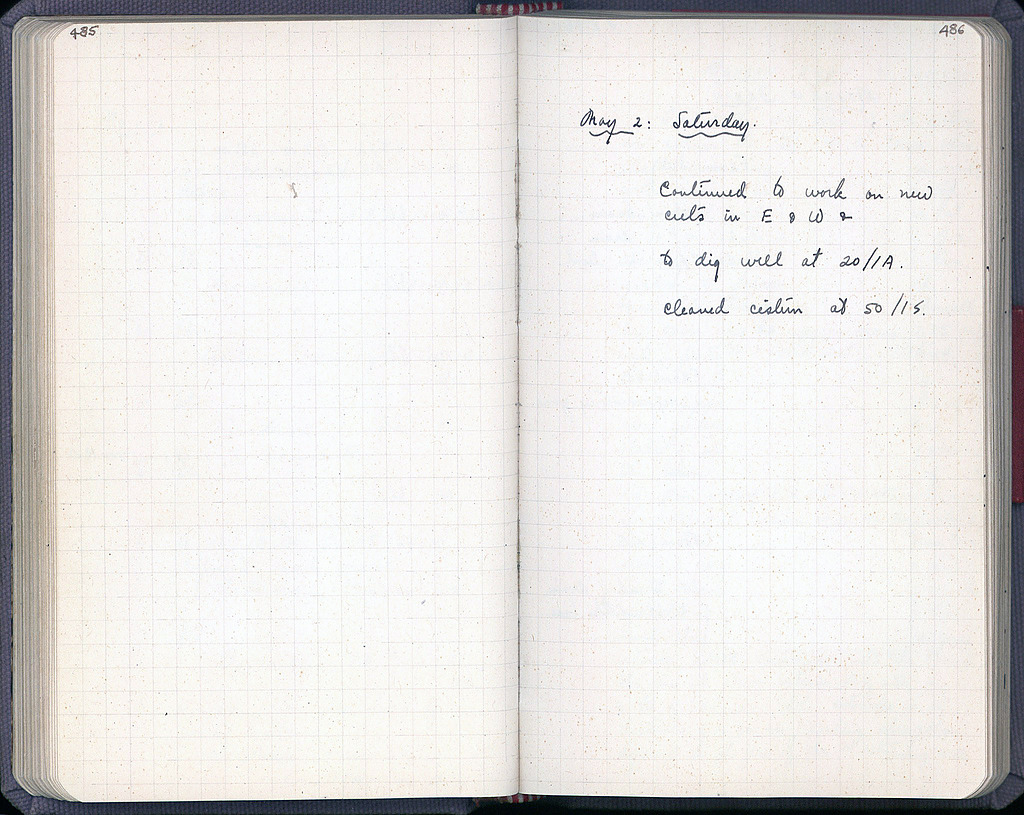 485
486
May 2: Saturday.
Continued to work on new
cuts in E & W &
to dig well at 20/1A.
cleaned cistern at 50/15.